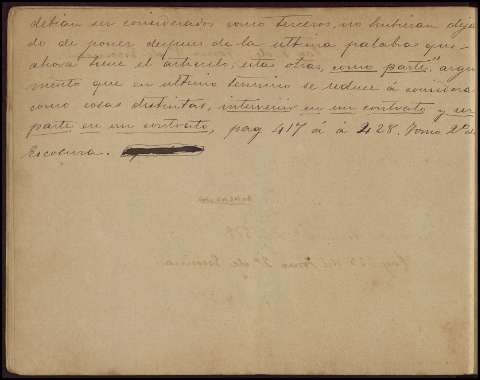 debian ser considerados como terceros, no hubieran deja
do de poner despues de la ultima palabra que
ahora tiene el articulo, estas otras, como parte." argu
mento que en ultimo termino se reduce á considerar
como cosas distintas, intervenir en un contrato y ser
parte en un contrato, pag 417 á á 428. Tomo 2º de
Escobura.